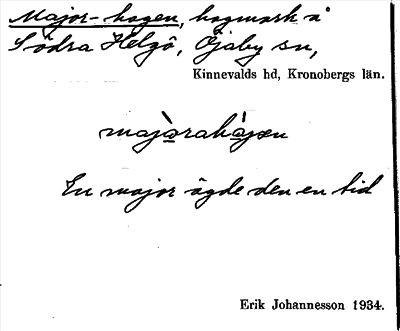 Major-hagen, hagmark å
Södra Helgö, Öjaby sn,
Kinnevalds hd, Kronobergs län.
majòrahàgen
En major ägde den en tid
Erik Johannesson 1934.